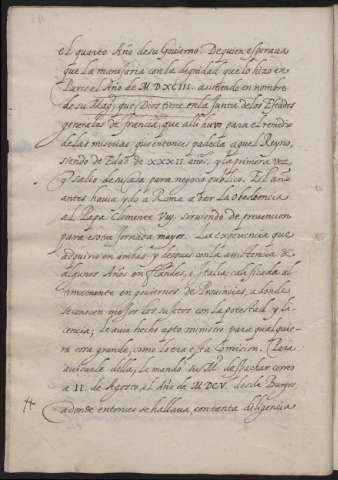 el quarto Año de su Govierno. De quien esperava
que la manejaria con la dignidad que lo hizo en
Paris el Año de M.DXCIII. asistiendo en nombre
de su Mag.d que Dios tiene en la Junta de los Estados
generales de francia, que alli huvo para el remedio
de las miserias que entonces padecia aquel Reyno,
siendo de Edad de XXXII. años, y la primera vez
que salio de su casa para negocio publico. El año
antes havia ydo a Roma a dar la obediencia
al Papa Clemente Viij. sirviendo de prevencion
para esotra Jornada mayor. La experiencia que
adquirio en ambas, y despues con la assistencia de
algunos Años en flandes, e Italia; calificada ul-
timamente en goviernos de Provincias, a donde
se conocen mejor los sujetos con la potestad y li-
cencia; le avia hecho apto ministro para qualquie-
ra cosa grande, como lo era esta Comision. Para
avisarle della, le mando su M.d despachar correo
a II. de Agosto, al Año de M.DCV. desde Burgos,
adonde entonces se hallava, con tanta diligencia